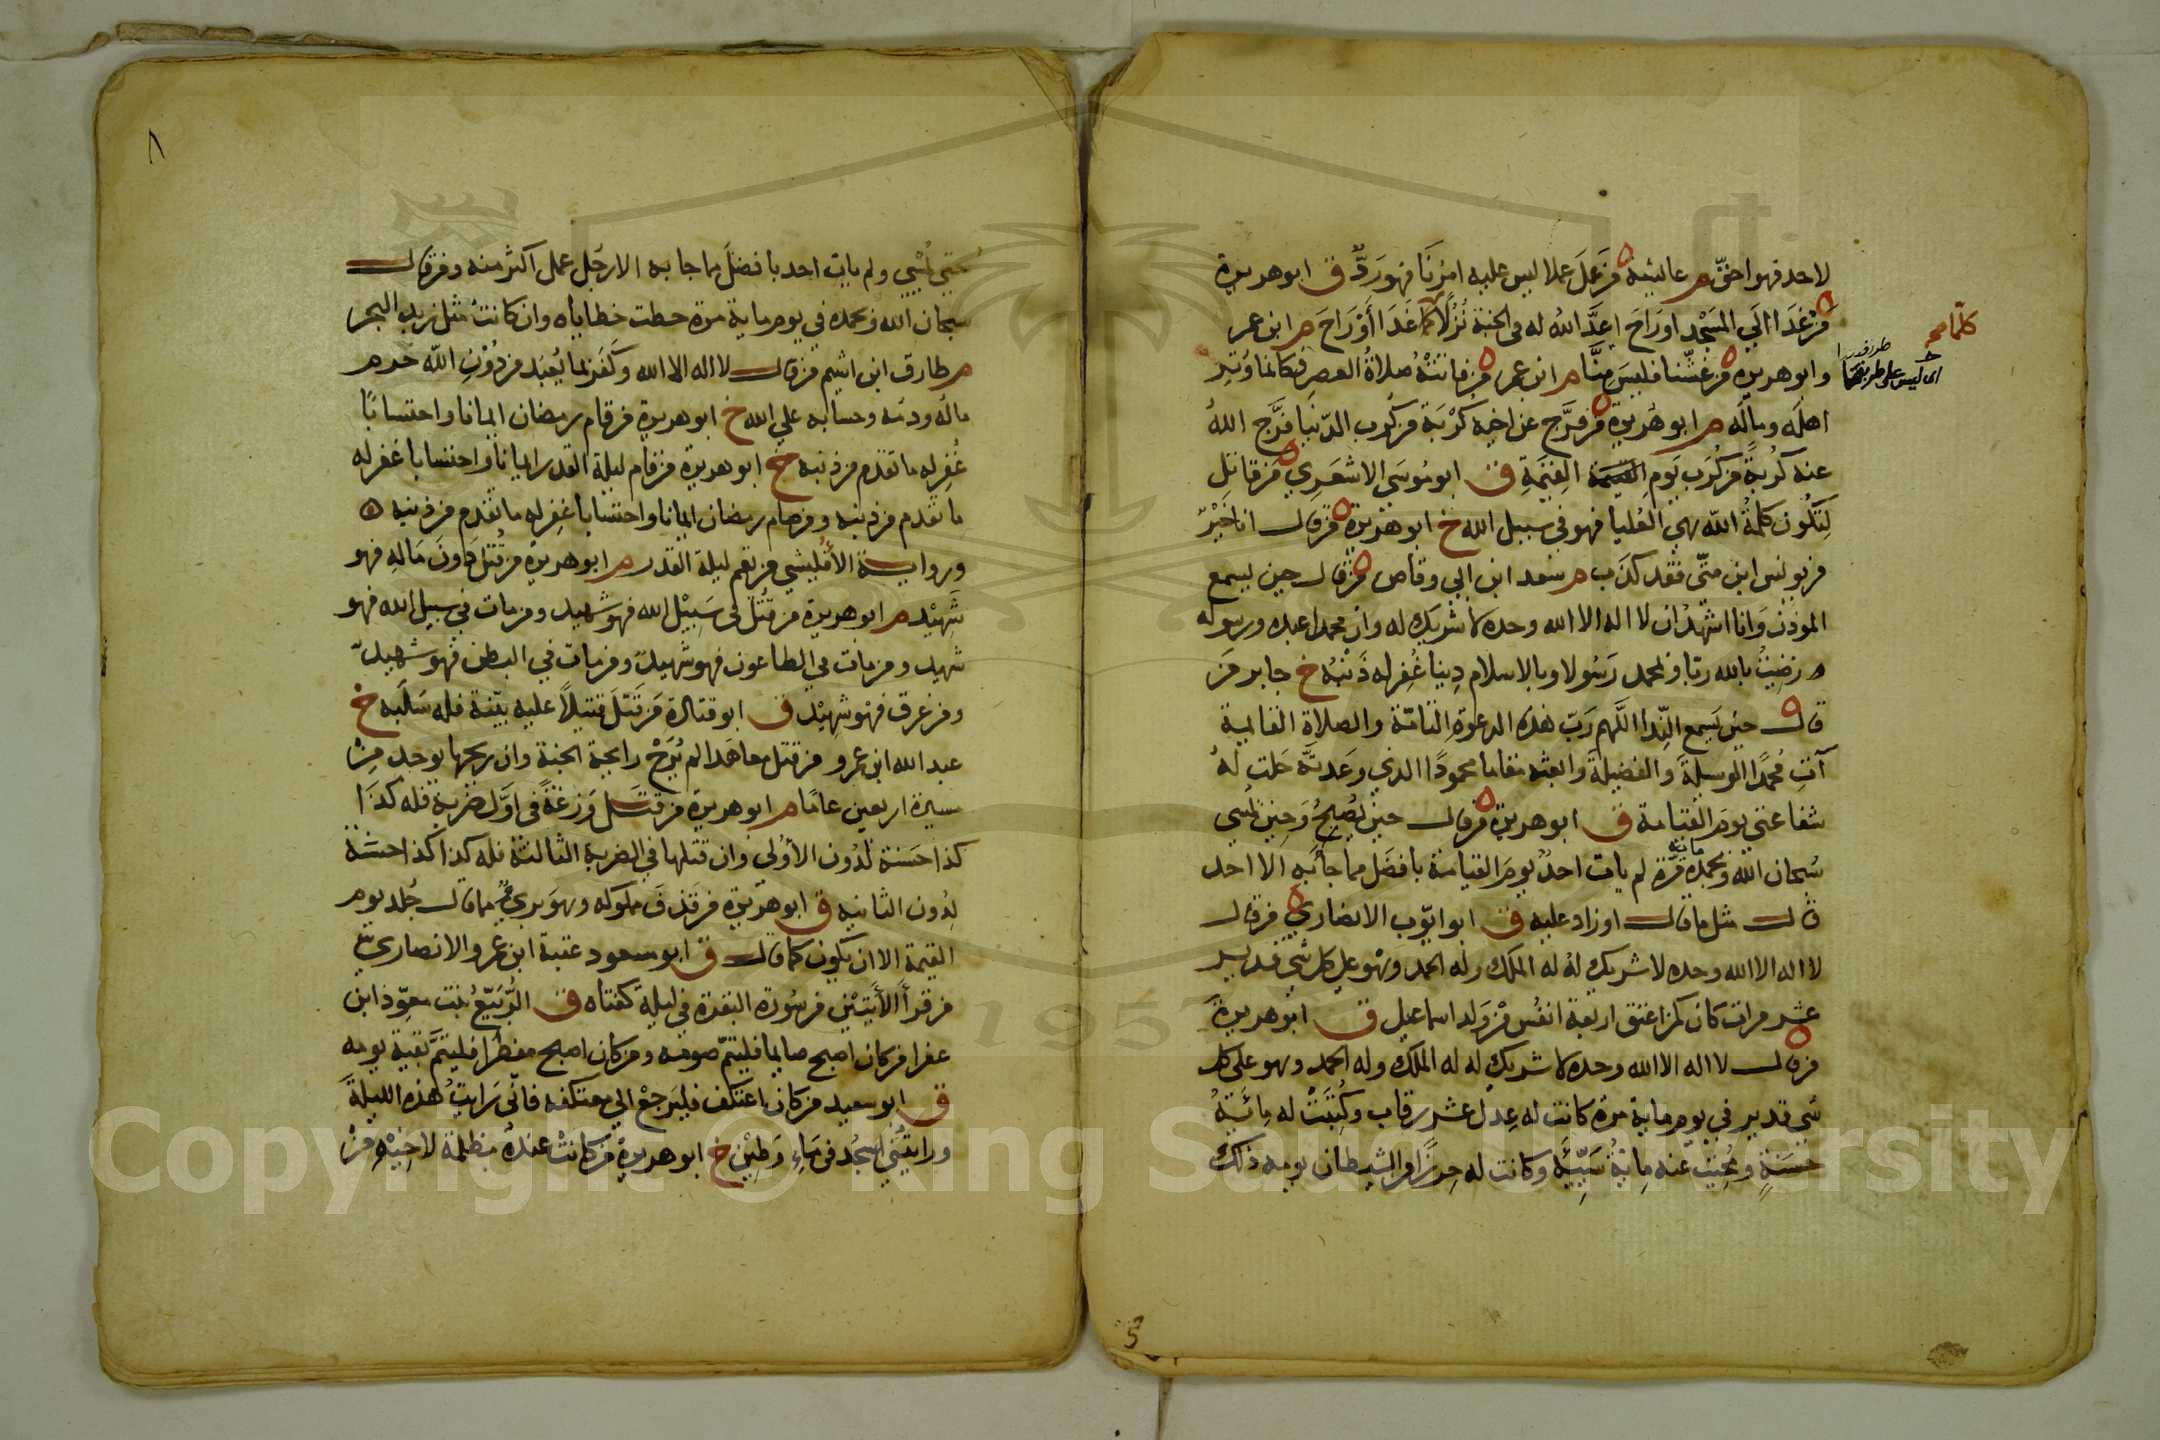 لاحد فهو احق م عايشه من عمل عملا ليس عليه امرنا فهو ردّ ق ابو هريرة
من غدا الي المسجد او راح اعدّ الله له في الجنة نُزُلاً كلما غدا أو راح م ابن عمر
كلما صح
وابو هريره من غشّنا فليس منّا م ابن عمر من فاتته صلاة العصر فكانما وُتِر
اي ليس علي طريقتنا
اهله وماله م ابو هريرة من فرّج عن اخيه كربة من كرب الدّنيا فرّج الله
عنه كربة من كرب يوم القيمة ق ابو موسي الاشعري من قاتل
لتكون كلمة الله هي العليا فهو في سبيل الله خ ابو هريرة من قال انا خير
من يونس ابن متّي فقد كذب م سعد ابن ابي وقاص من قال حين يسمع
الموذن وانا اشهد ان لا اله الا الله وحده لا شريك له وان محمدا عبده ورسوله
رضيت بالله ربّا وبمحمد رسولا وبالاسلام دينا غُفِر له ذنبه خ جابر من
قال حين يسمع النّدا اللّهم ربّ هذه الدعوة التامّة والصلاة القايمة
آت محمدًا الوسيلة والفضيلة وابعثه مقاما محمودًا الذي وعدته حلت له
شفاعتي يوم القيامة ق ابو هريرة من قال حين يصبح وحين يمسي
سبحان الله وبحمده مائة مرّة لم يات احد يوم القيامة بافضل مما جا به الا احد
قال مثل ما قال او زاد عليه ق ابو ايّوب الانصاري من قال
لا اله الا الله وحده لا شريك له له الملك وله الحمد وهو علي كل شي قدير
عشر مرات كان كمن اعتق اربعة انفس من ولد اسماعيل ق ابو هريرة
من قال لا اله الا الله وحده لا شريك له له الملك وله الحمد وهو على كل
شي قدير في يوم ماية مرة كانت له عدل عشر رقاب وكتبت له مائة
حسنة ومحيت عنه ماية سيّئة وكانت له حرزًا من الشيطان يومه ذلك
٨
حتي يمسي ولم يات احد بافضل مما جا به الا رجل عمل اكثر منه ومن قال
سبحان الله وبحمده في يوم ماية مرة حطت خطاياه وان كانت مثل زبد البحر
م طارق ابن اشيم من قال لا اله الا الله وكفر بما يُعبَد من دون الله حرم
ماله ودمه وحسابه علي الله خ ابو هريرة من قام رمضان ايمانا واحتسابًا
غُفِر له ما تقدم من ذنبه خ ابو هريرة من قام ليلة القدر ايمانا واحتسابا غفر له
ما تقدم من ذنبه ومن صام رمضان ايمانا واحتسابا غفر له ما تقدم من ذنبه
ورواية الأقليشي من يقم ليلة القدر م ابو هريرة من قُتل دون ماله فهو
شهيد م ابو هريرة من قُتل في سبيل الله فهو شهيد ومن مات في سبيل الله فهو
شهيد ومن مات في الطاعون فهو شهيد ومن مات في البطن فهو شهيد
ومن غرق فهو شهيد ق ابو قتادة من قتل قتيلاً عليه بيّنة فله سلبه خ
عبد الله ابن عمرو من قتل معاهدا لم يُرَحْ رايحة الجنة وان ريحها يوجد من
مسيرة اربعين عامًا م ابو هريرة من قتل وزغة في اوّل ضربة فله كذا
كذا حسنة لدون الأولي وان قتلها في الضربة الثالثة فله كذا كذا حسنة
لدون الثانيه ق ابو هريرة من قذف مملوكه وهو بري مما قال جُلد يوم
القيمة الا ان يكون كما قال ق ابو مسعود عقبة ابن عمرو الانصاري
من قرأ الأيتين من سورة البقرة في ليلة كفتاه ق الرُّبَيّع بنت معوّذ ابن
عفرا من كان اصبح صايما فليتمّ صومه ومن كان اصبح مفطرا فليتمّ بقية يومه
ق ابو سعيد من كان اعتكف فليرجع الي معتكفه فانّي رايت هذه الليلة
ورايتُني اسجد في ماءٍ وطين خ ابو هريرة من كانت عنده مظلمة لاخيه من
Copyright © King Saud University
1957